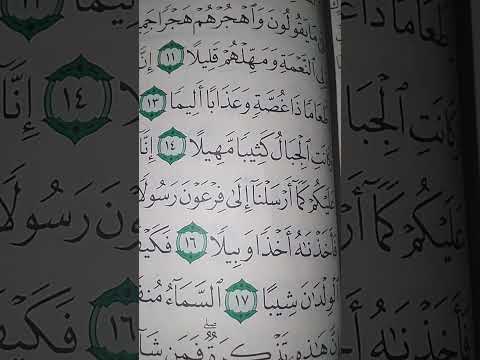 مَا يَقُولُونَ وَٱهْجُرْهُمْ هَجْرًا جَمِي
لِي ٱلنَّعْمَةِ وَمَهِّلْهُمْ قَلِيلًا ١١ إِنَّ
طَعَامًا ذَا غُصَّةٍ وَعَذَابًا أَلِيمًا ١٣
كَانَتِ ٱلْجِبَالُ كَثِيبًا مَّهِيلًا ١٤ إِنَّا
عَلَيْكُمْ كَمَآ أَرْسَلْنَآ إِلَىٰ فِرْعَوْنَ رَسُولًا
فَأَخَذْنَٰهُ أَخْذًا وَبِيلًا ١٦ فَكَيْفَ
ٱلْوِلْدَٰنَ شِيبًا ١٧ ٱلسَّمَآءُ مُنفَ
نَّ هَٰذِهِۦ تَذْكِرَةٌ ۖ فَمَن شَآ